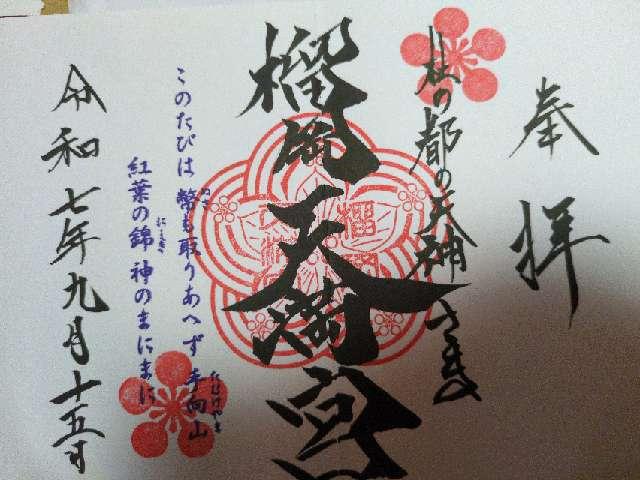 奉拝
杜の都の天神さま
榴岡天満宮
このたびは 幣も取りあへず 手向山
紅葉の錦 神のまにまに
令和七年九月十五日